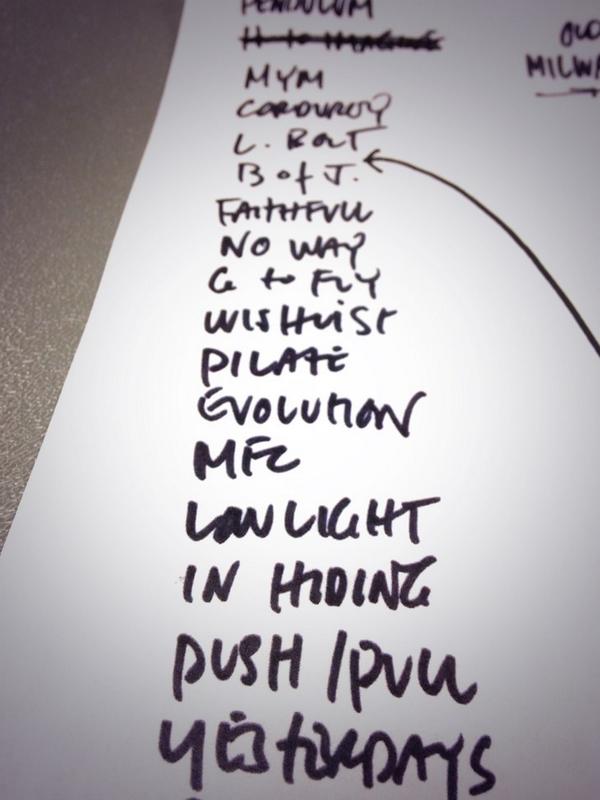 PENDULUM
MYM
CORDUROY
L. BOLT
B of J.
FAITHFULL
NO WAY
G to FLY
WISHLIST
PILATE
EVOLUTION
MFC
LOW LIGHT
IN HIDING
PUSH/PULL
YESTERDAYS
MILWA